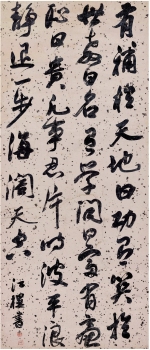 有補於天地曰功有關於
世教曰名有學問曰富有廉
恥曰貴凡事忍片時波平浪
静退一步海闊天空
江樫書